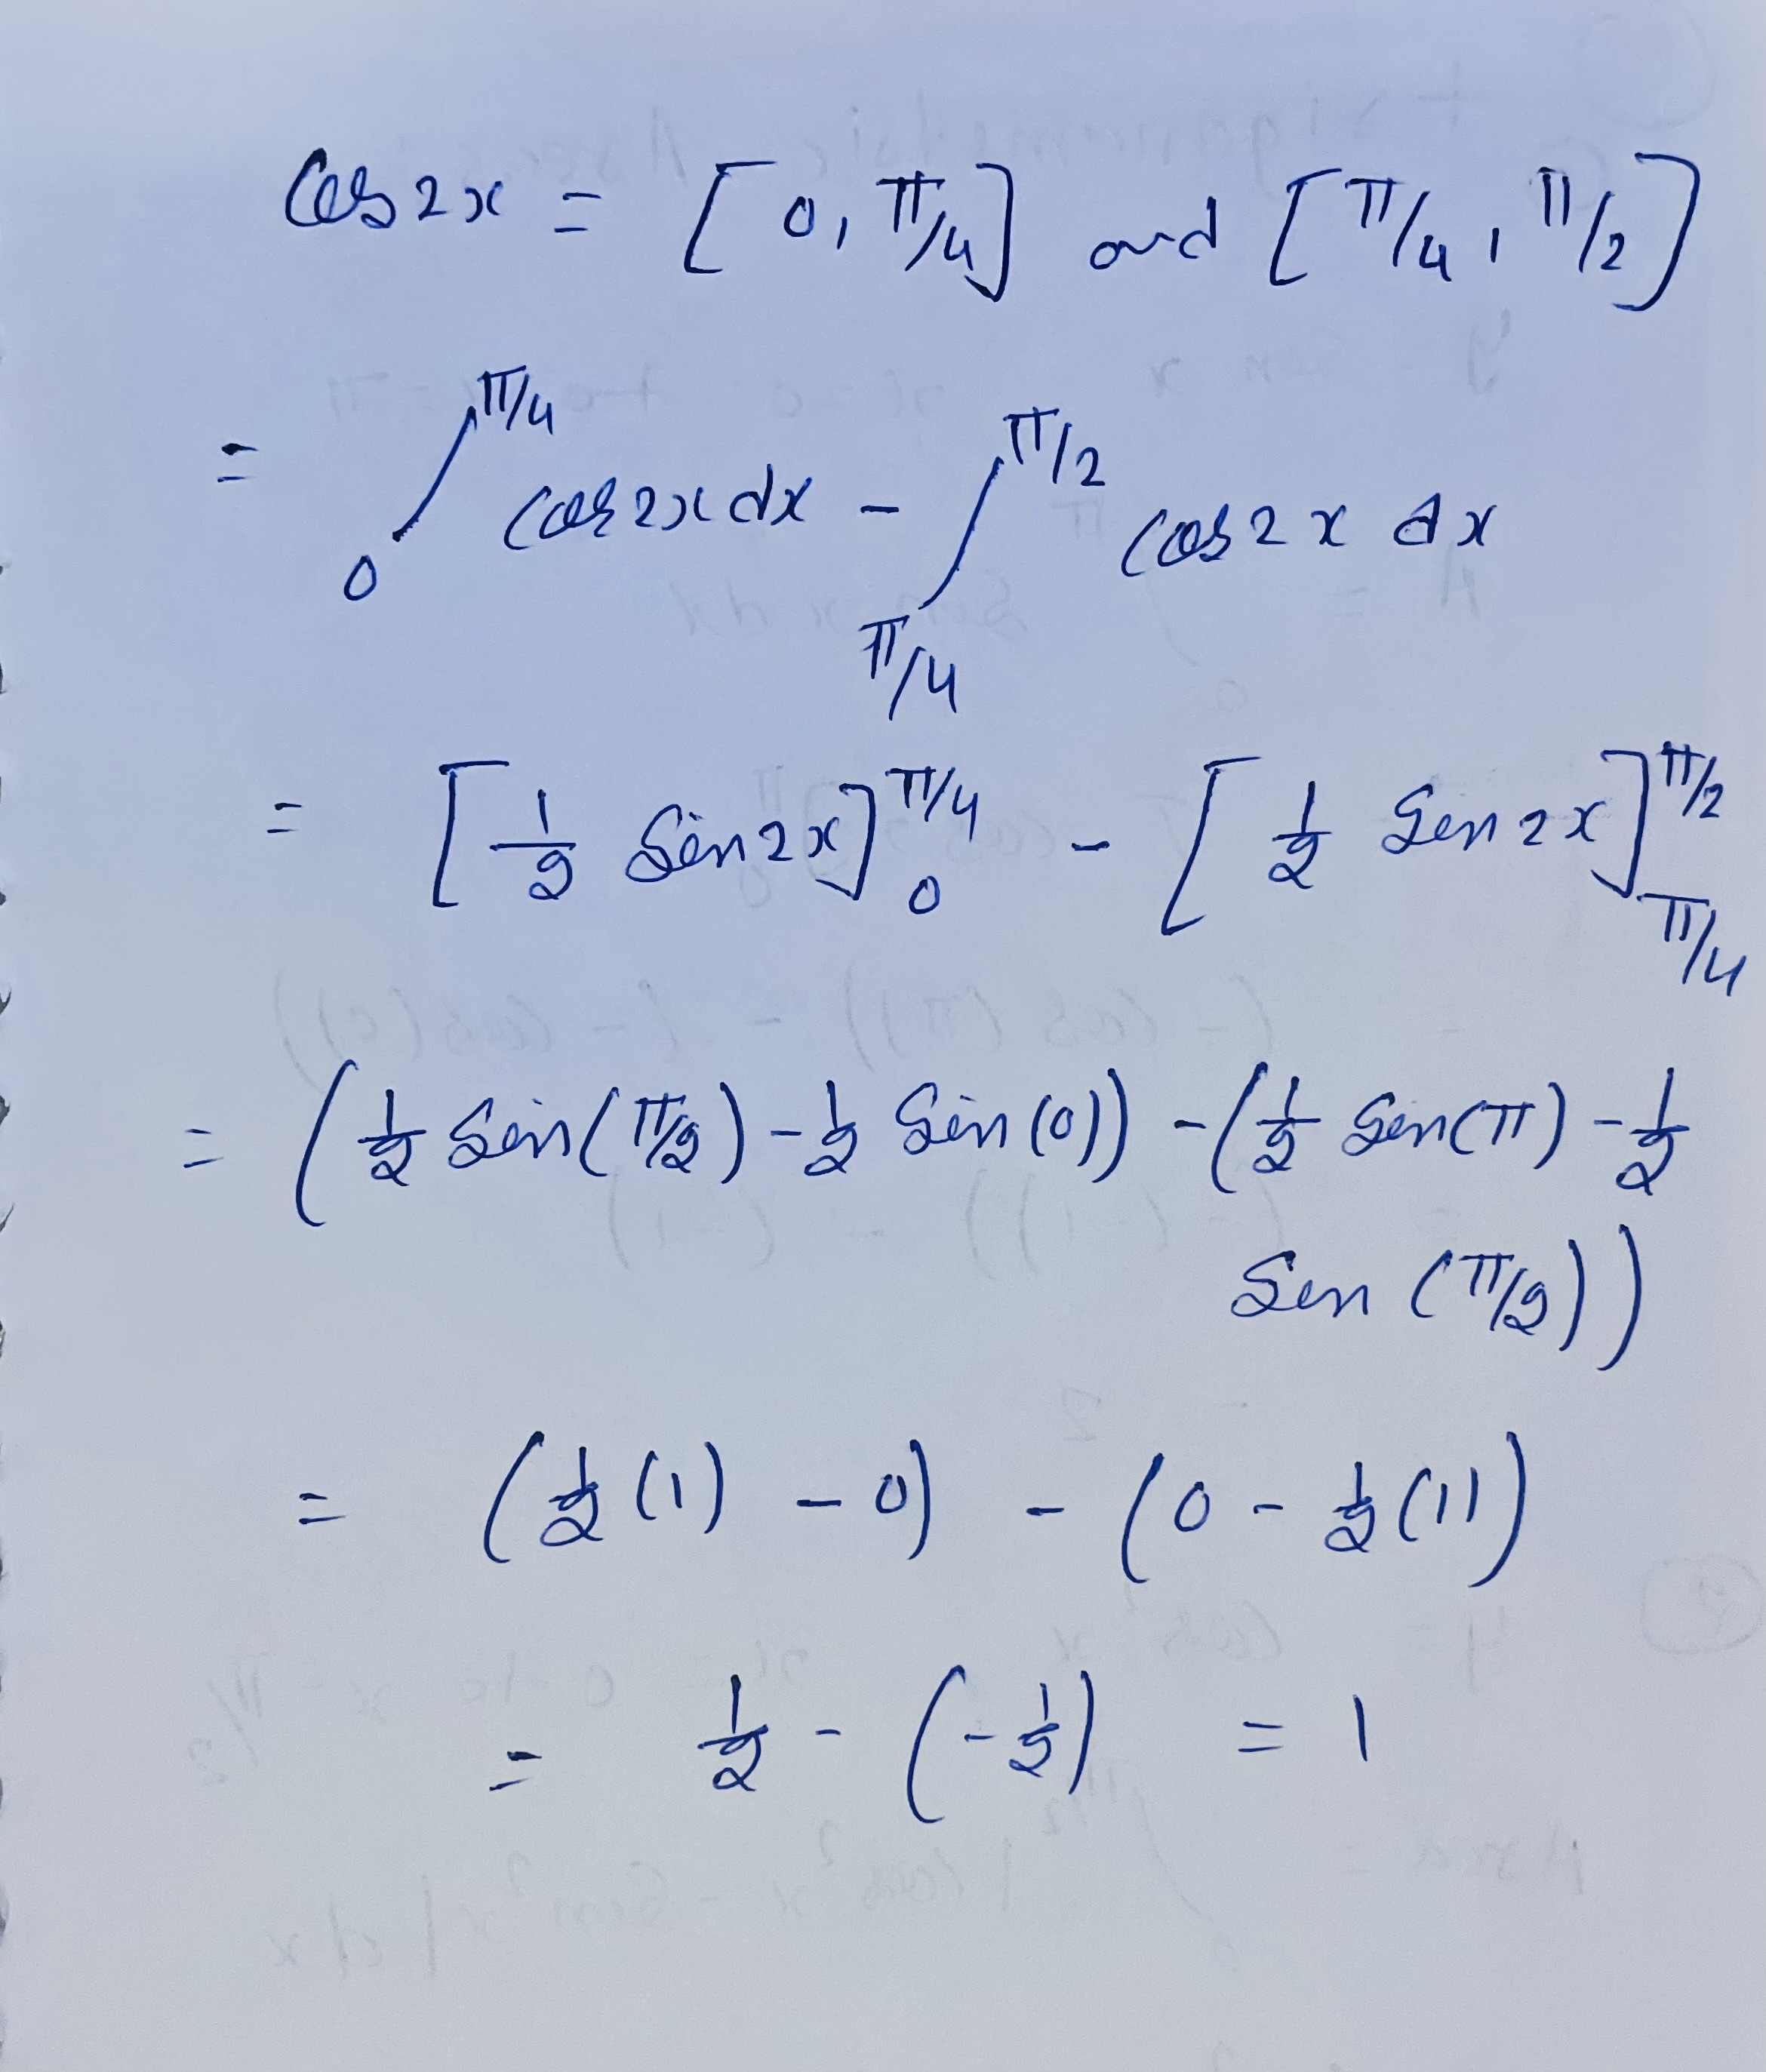 Cos 2x = [0, π/4] and [π/4, π/2]
= ∫₀^π/4 cos 2x dx - ∫_π/4^π/2 cos 2x dx
= [1/2 Sin 2x]₀^π/4 - [1/2 Sin 2x]_π/4^π/2
= (1/2 Sin(π/2) - 1/2 Sin(0)) - (1/2 Sin(π) - 1/2
Sin (π/2))
= (1/2 (1) - 0) - (0 - 1/2 (1))
= 1/2 - (-1/2) = 1